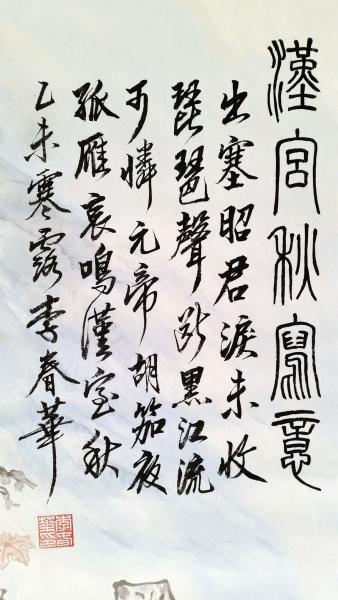 漢宮秋寫意
出塞昭君淚未收
琵琶聲斷黑江流
可憐元帝胡笳夜
孤雁哀鳴漢室秋
乙未寒露李春華
李春
華印